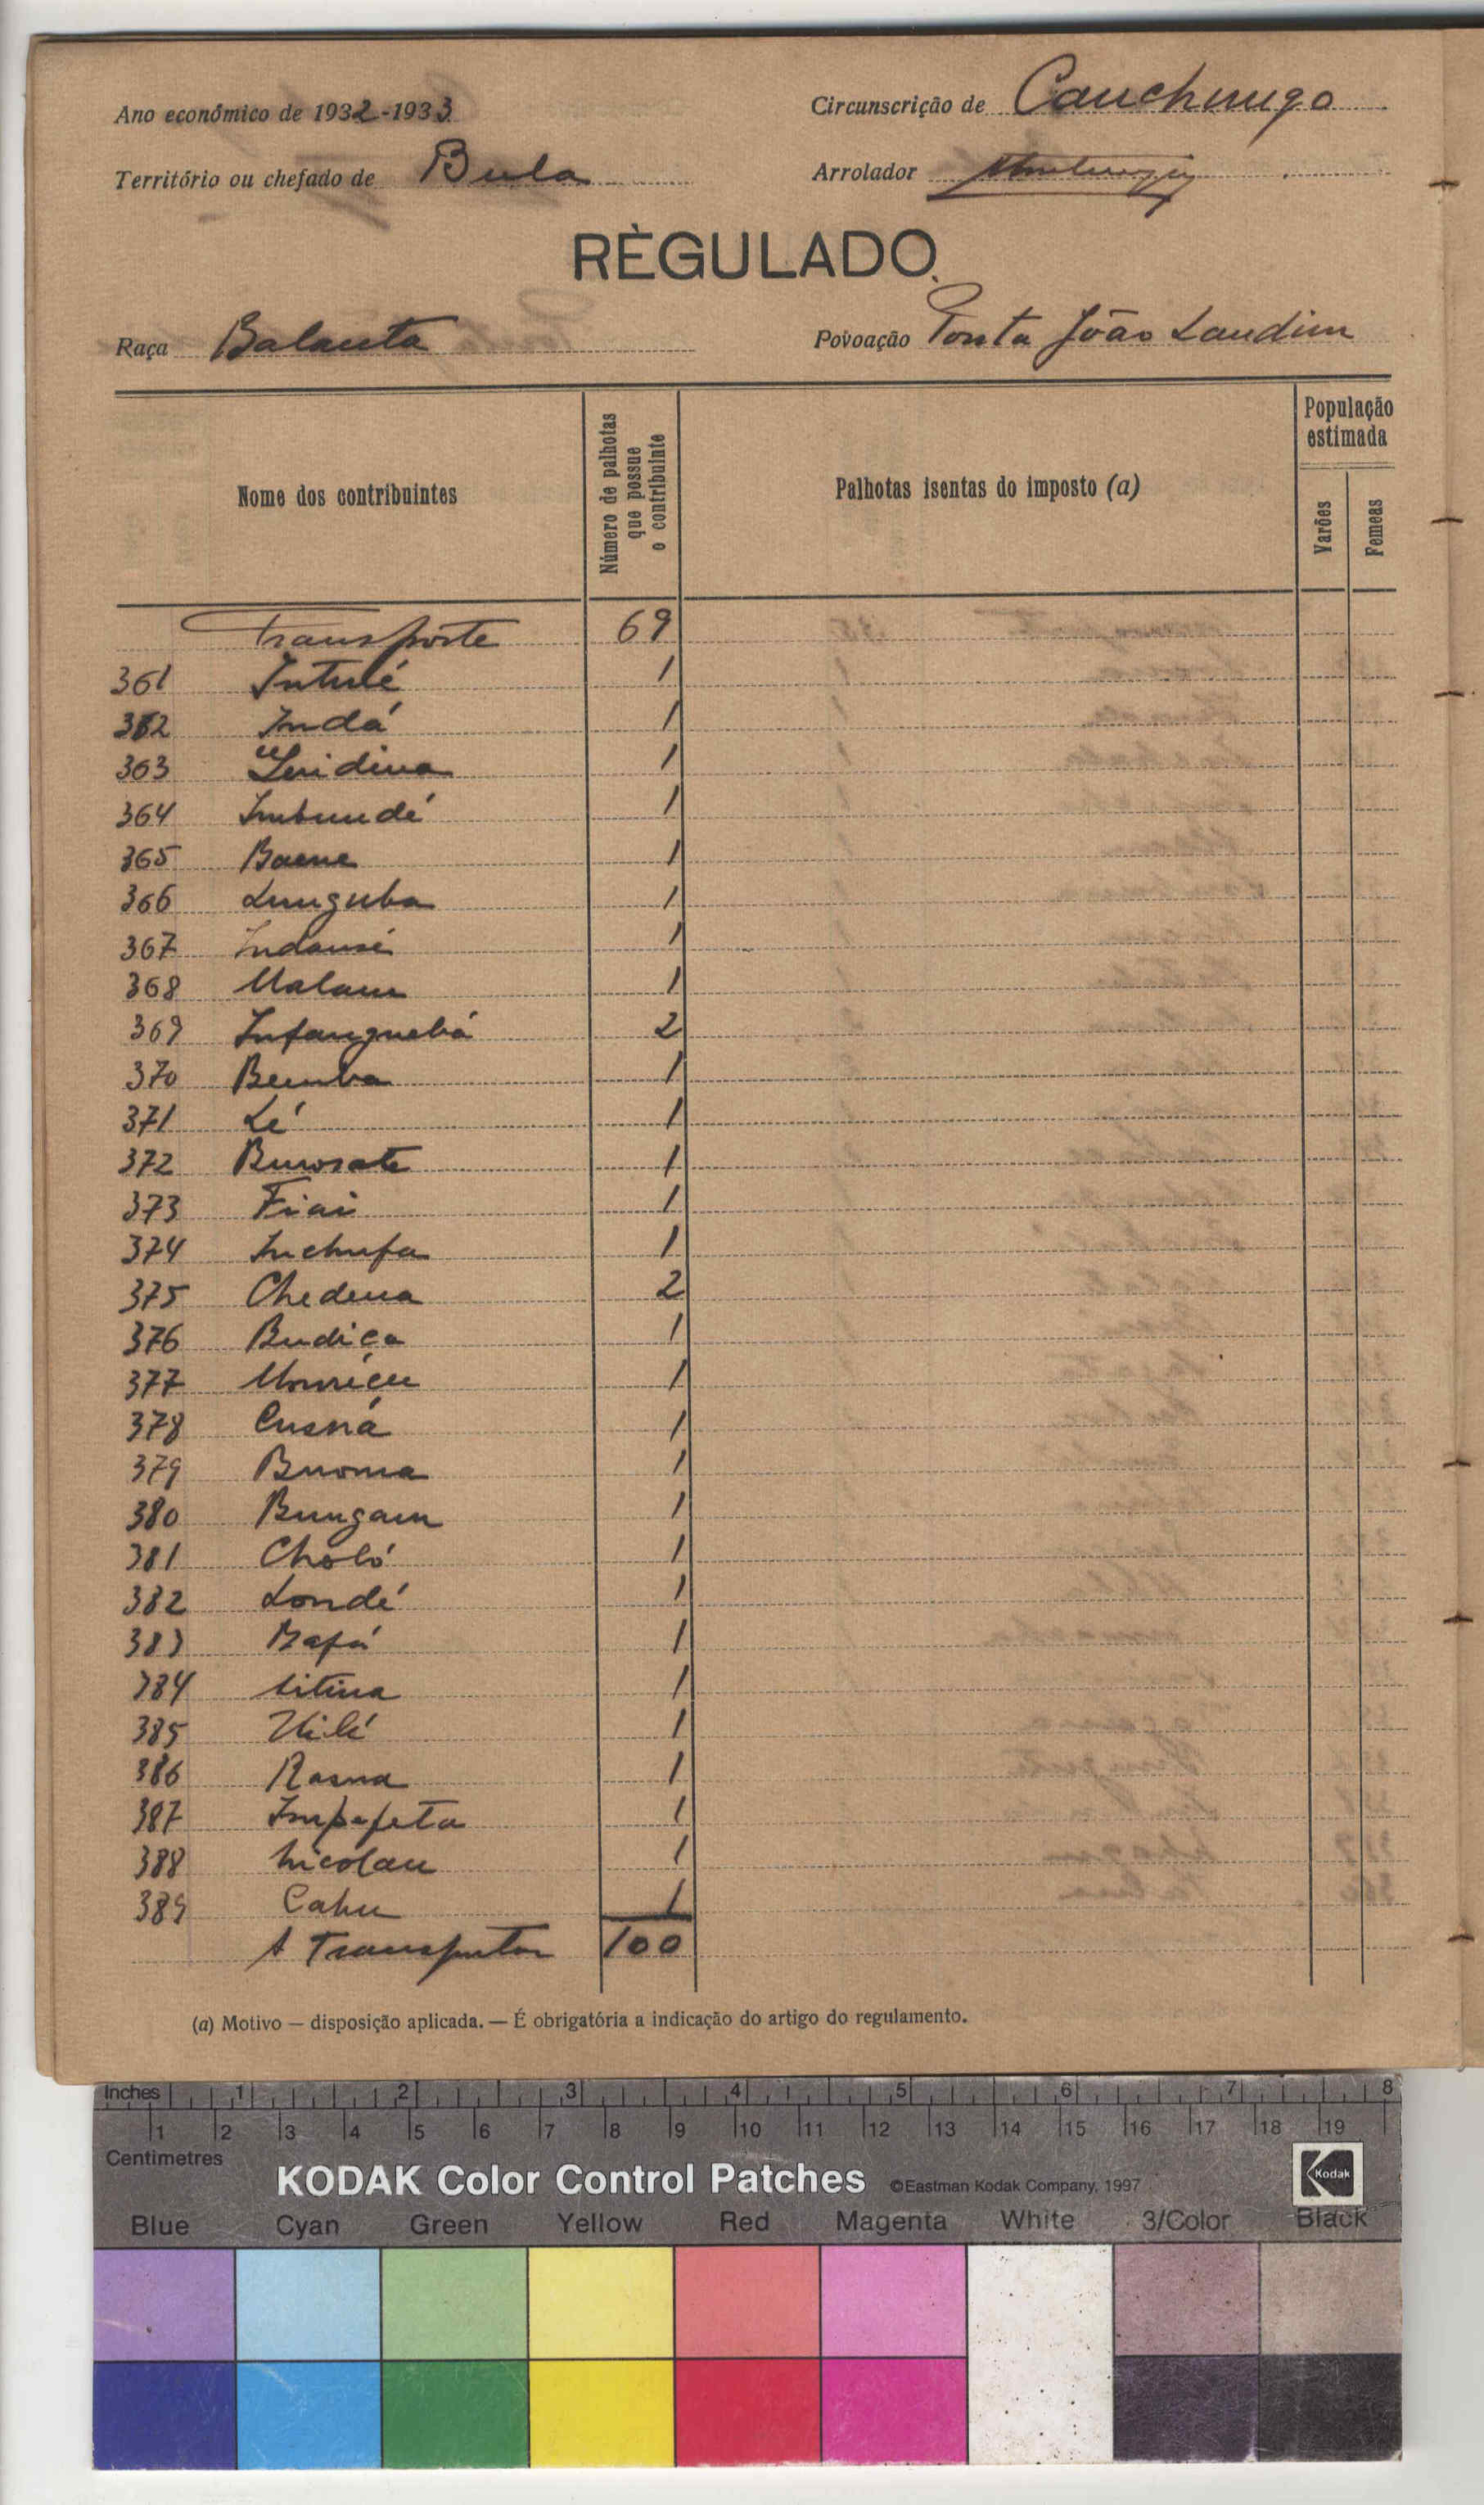 Ano económico de 1932-1933
Circunscrição de Canchungo
Território ou chefado de Bula
Arrolador
RÈGULADO
Raça Balanta
Povoação Ponta João Landim
Nome dos contribuintes
Número de palhotas que possue o contribuinte
Palhotas isentas do imposto (a)
População estimada
Varões
Femeas
Transporte 69
361 Intulé 1
362 Indá 1
363 1
364 Imbundé 1
365 Baene 1
366 Lunguba 1
367 Indansé 1
368 Malam 1
369 Infanguebá 2
370 Bemba 1
371 Lé 1
372 Burosate 1
373 Fiai 1
374 Inchufa 1
375 Chedena 2
376 Budica 1
377 1
378 Cusná 1
379 Buoma 1
380 Bungam 1
381 Choló 1
382 Londé 1
383 Bafá 1
384 Litina 1
385 1
386 Rasna 1
387 Impefeta 1
388 Nicolau 1
389 Cahu 1
A Transportar 100
(a) Motivo — disposição aplicada. — É obrigatória a indicação do artigo do regulamento.
Inches 1 2 3 4 5 6 7 8
1 2 3 4 5 6 7 8 9 10 11 12 13 14 15 16 17 18 19
Centimetres
KODAK Color Control Patches ©Eastman Kodak Company, 1997 Kodak
Blue Cyan Green Yellow Red Magenta White 3/Color Black